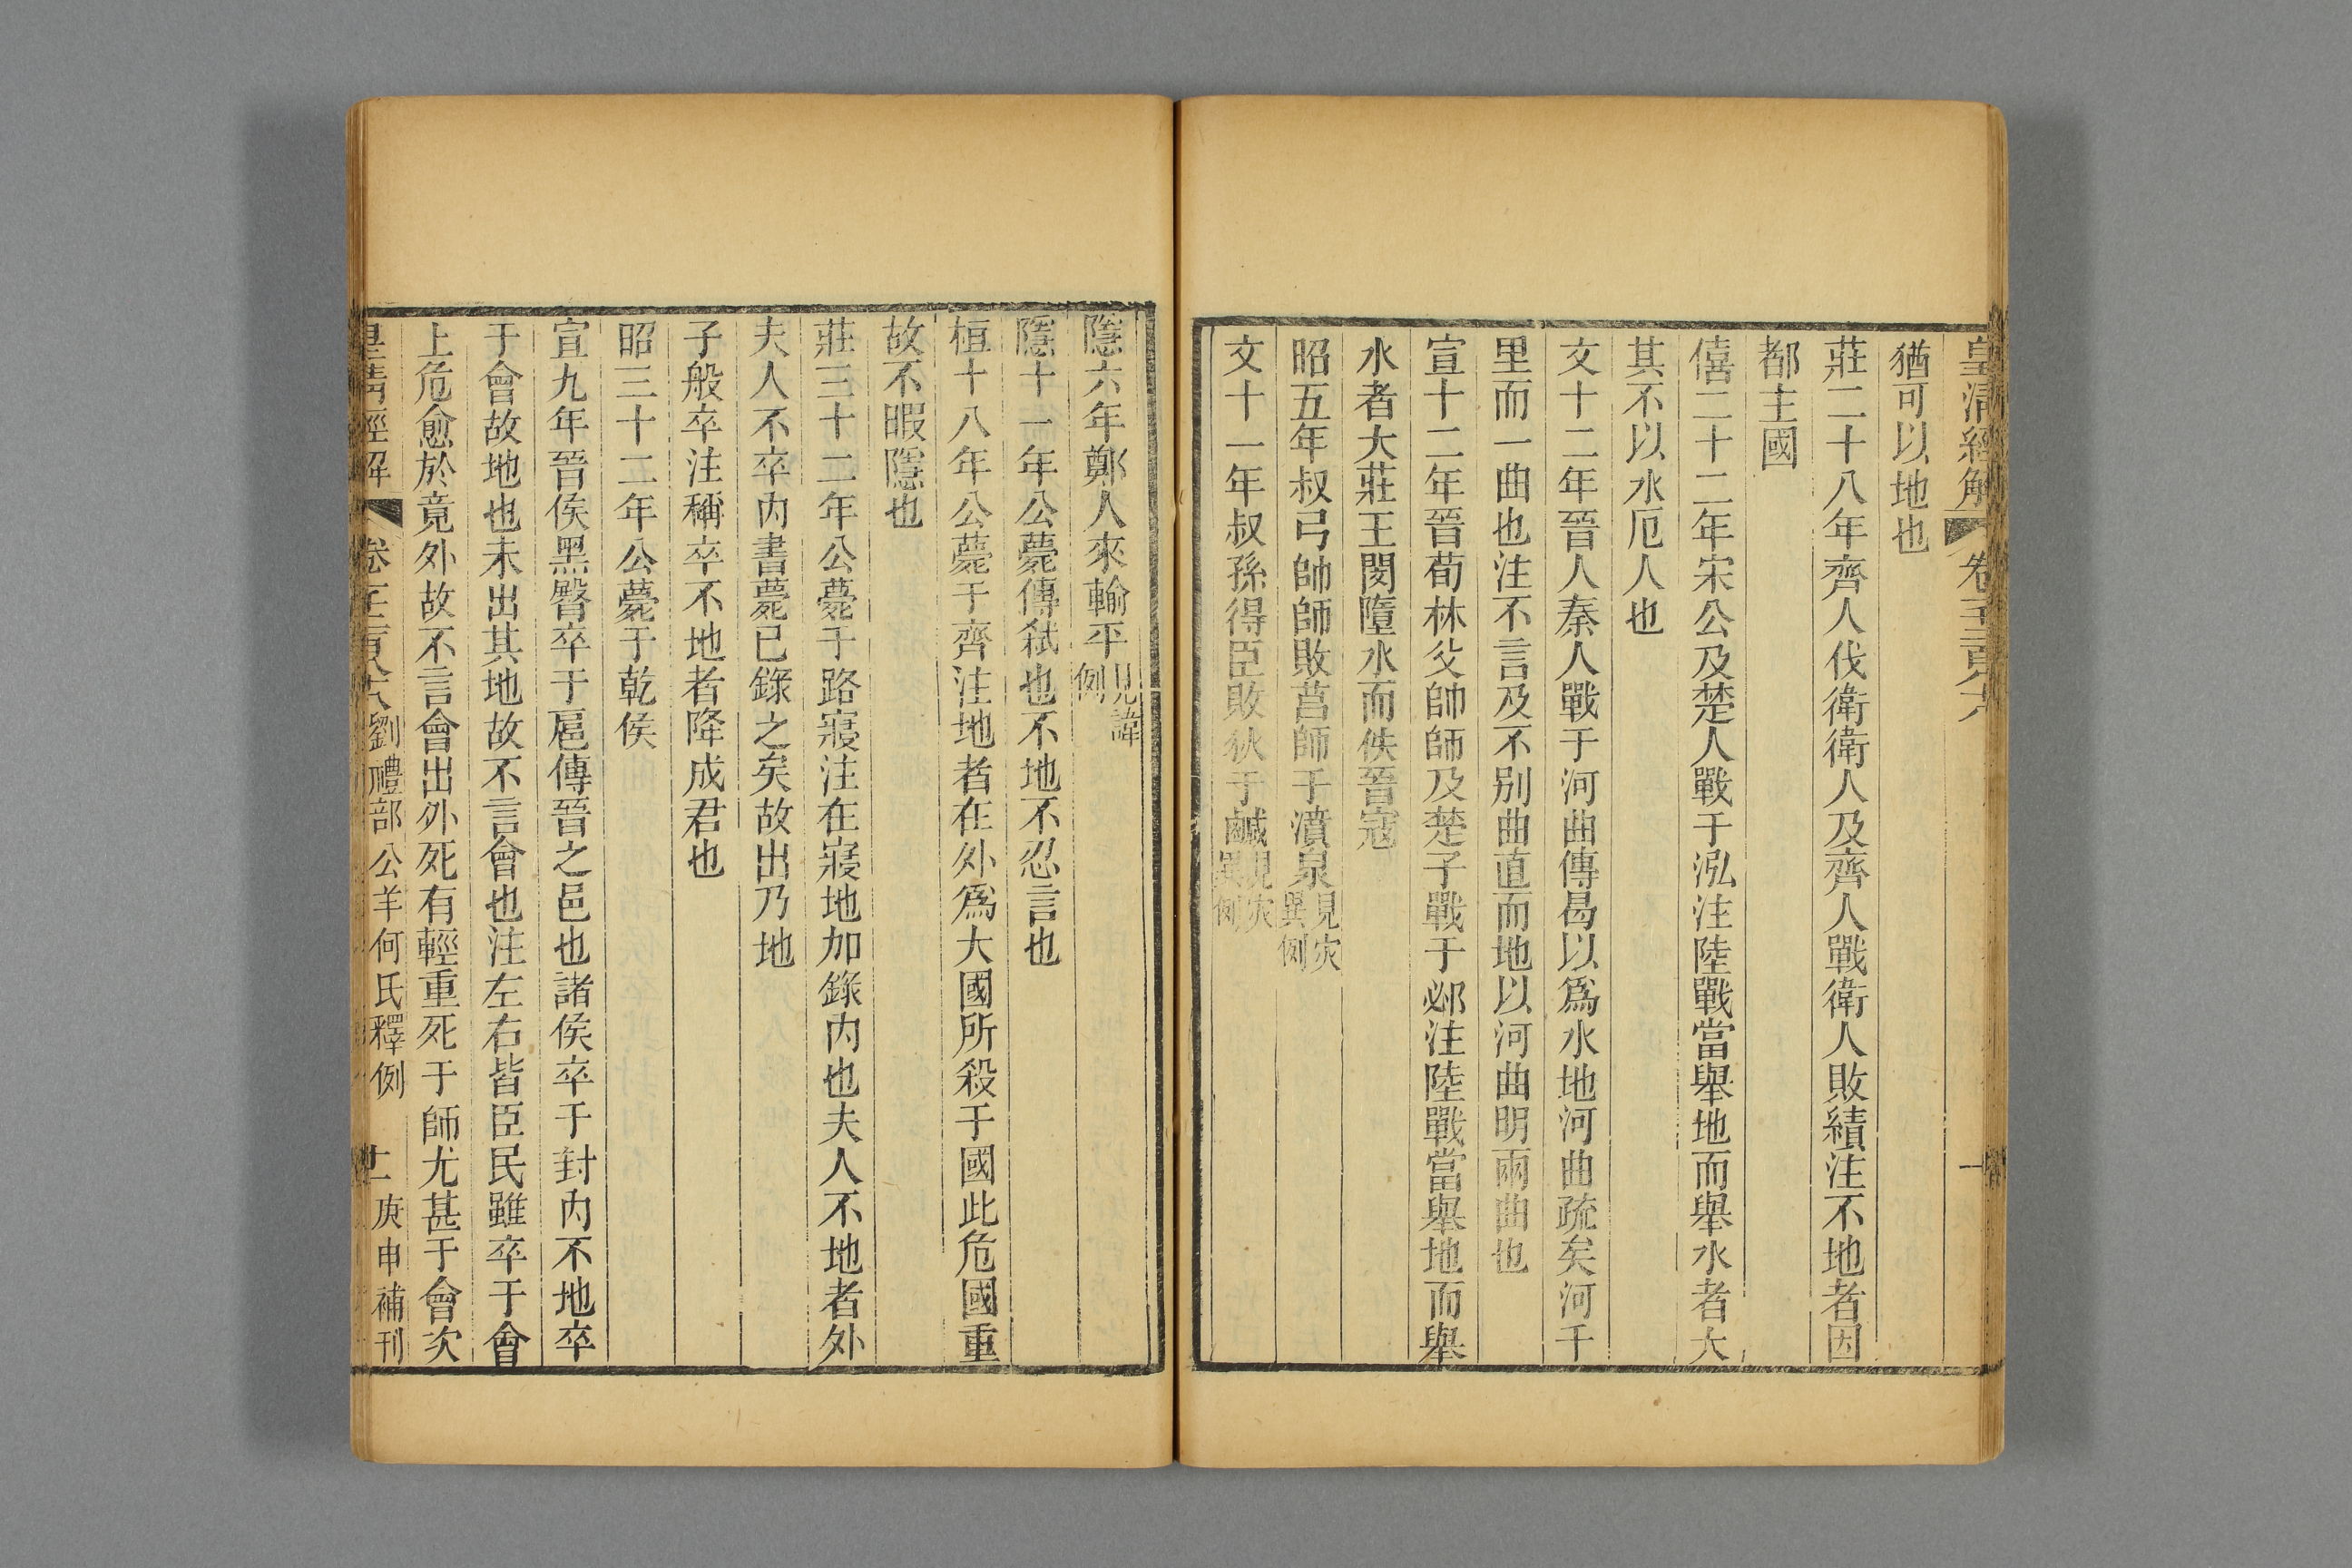 皇清經解 卷
猶可以地也
莊二十八年齊人伐衛衛人及齊人戰衛人敗績注不地者因
都主國
僖二十二年宋公及楚人戰于泓注陸戰當舉地而舉水者大
其不以水厄人也
文十二年晉人秦人戰于河曲傳曷以爲水地河曲疏矣河千
里而一曲也注不言及不別曲直而地以河曲明兩曲也
宣十二年晉荀林父帥師及楚子戰于邲注陸戰當舉地而舉
水者大莊王閔隋水而佚晉寇
昭五年叔弓帥師敗莒師于濆泉見灾異例
文十一年叔孫得臣敗狄于鹹見灾異例
隱六年鄭人來輸平見諱例
隱十一年公薨傳弑也不地不忍言也
桓十八年公薨于齊注地者在外爲大國所殺于國此危國重
故不暇隱也
莊三十二年公薨于路寢注在寢地加錄內也夫人不地者外
夫人不卒內書薨已錄之矣故出乃地
子般卒注稱卒不地者降成君也
昭三十二年公薨于乾侯
宣九年晉侯黑臀卒于扈傳晉之邑也諸侯卒于封內不地卒
于會故地也未出其地故不言會也注左右皆臣民雖卒于會
上危愈於竟外故不言會出外死有輕重死于師尤甚于會次
皇清經解 卷 劉禮部公羊何氏釋例 庚申補刊